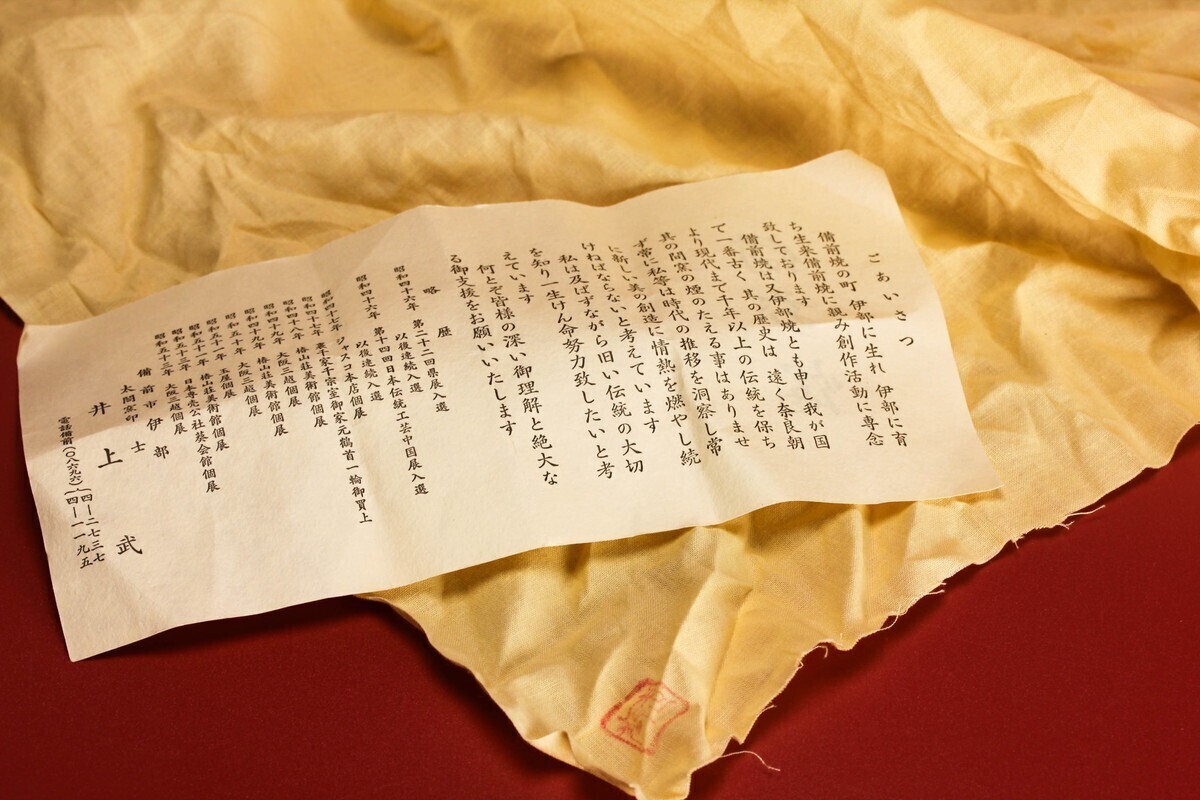 ごあいさつ
備前焼の町 伊部に生れ 伊部に育
ち生来備前焼に親み創作活動に専念
致しております
備前焼は又伊部焼とも申し我が国
で一番古く 其の歴史は 遠く奈良朝
より現代まで千年以上の伝統を保ち
其の間窯の煙のたえる事はありませ
ず常に私等は時代の推移を洞察し常
に新しい美の創造に情熱を燃やし続
けねばならないと考えています
私は及ばずながら旧い伝統の大切
を知り一生けん命努力致したいと考
えています
何とぞ皆様の深い御理解と絶大な
る御支援をお願いいたします
略歴
昭和四十六年 第二十二回県展入選
以後連続入選
昭和四十六年 第十四回日本伝統工芸中国展入選
以後連続入選
昭和四十七年 ジャスコ本店個展
昭和四十七年 裏千家千宗室御家元鶴首一輪御買上
昭和四十八年 椿山荘美術館個展
昭和四十九年 大阪三越個展
昭和四十九年 椿山荘美術館個展
昭和五十年 大阪三越個展
昭和五十年 玉屋個展
昭和五十一年 椿山荘美術館個展
昭和五十三年 日本専売公社葵会館個展
昭和五十三年 大阪三越個展
備前市伊部
太閤窯印 士
井上 武
電話備前(〇八六九六)(四―二七三七
(四―一一九五